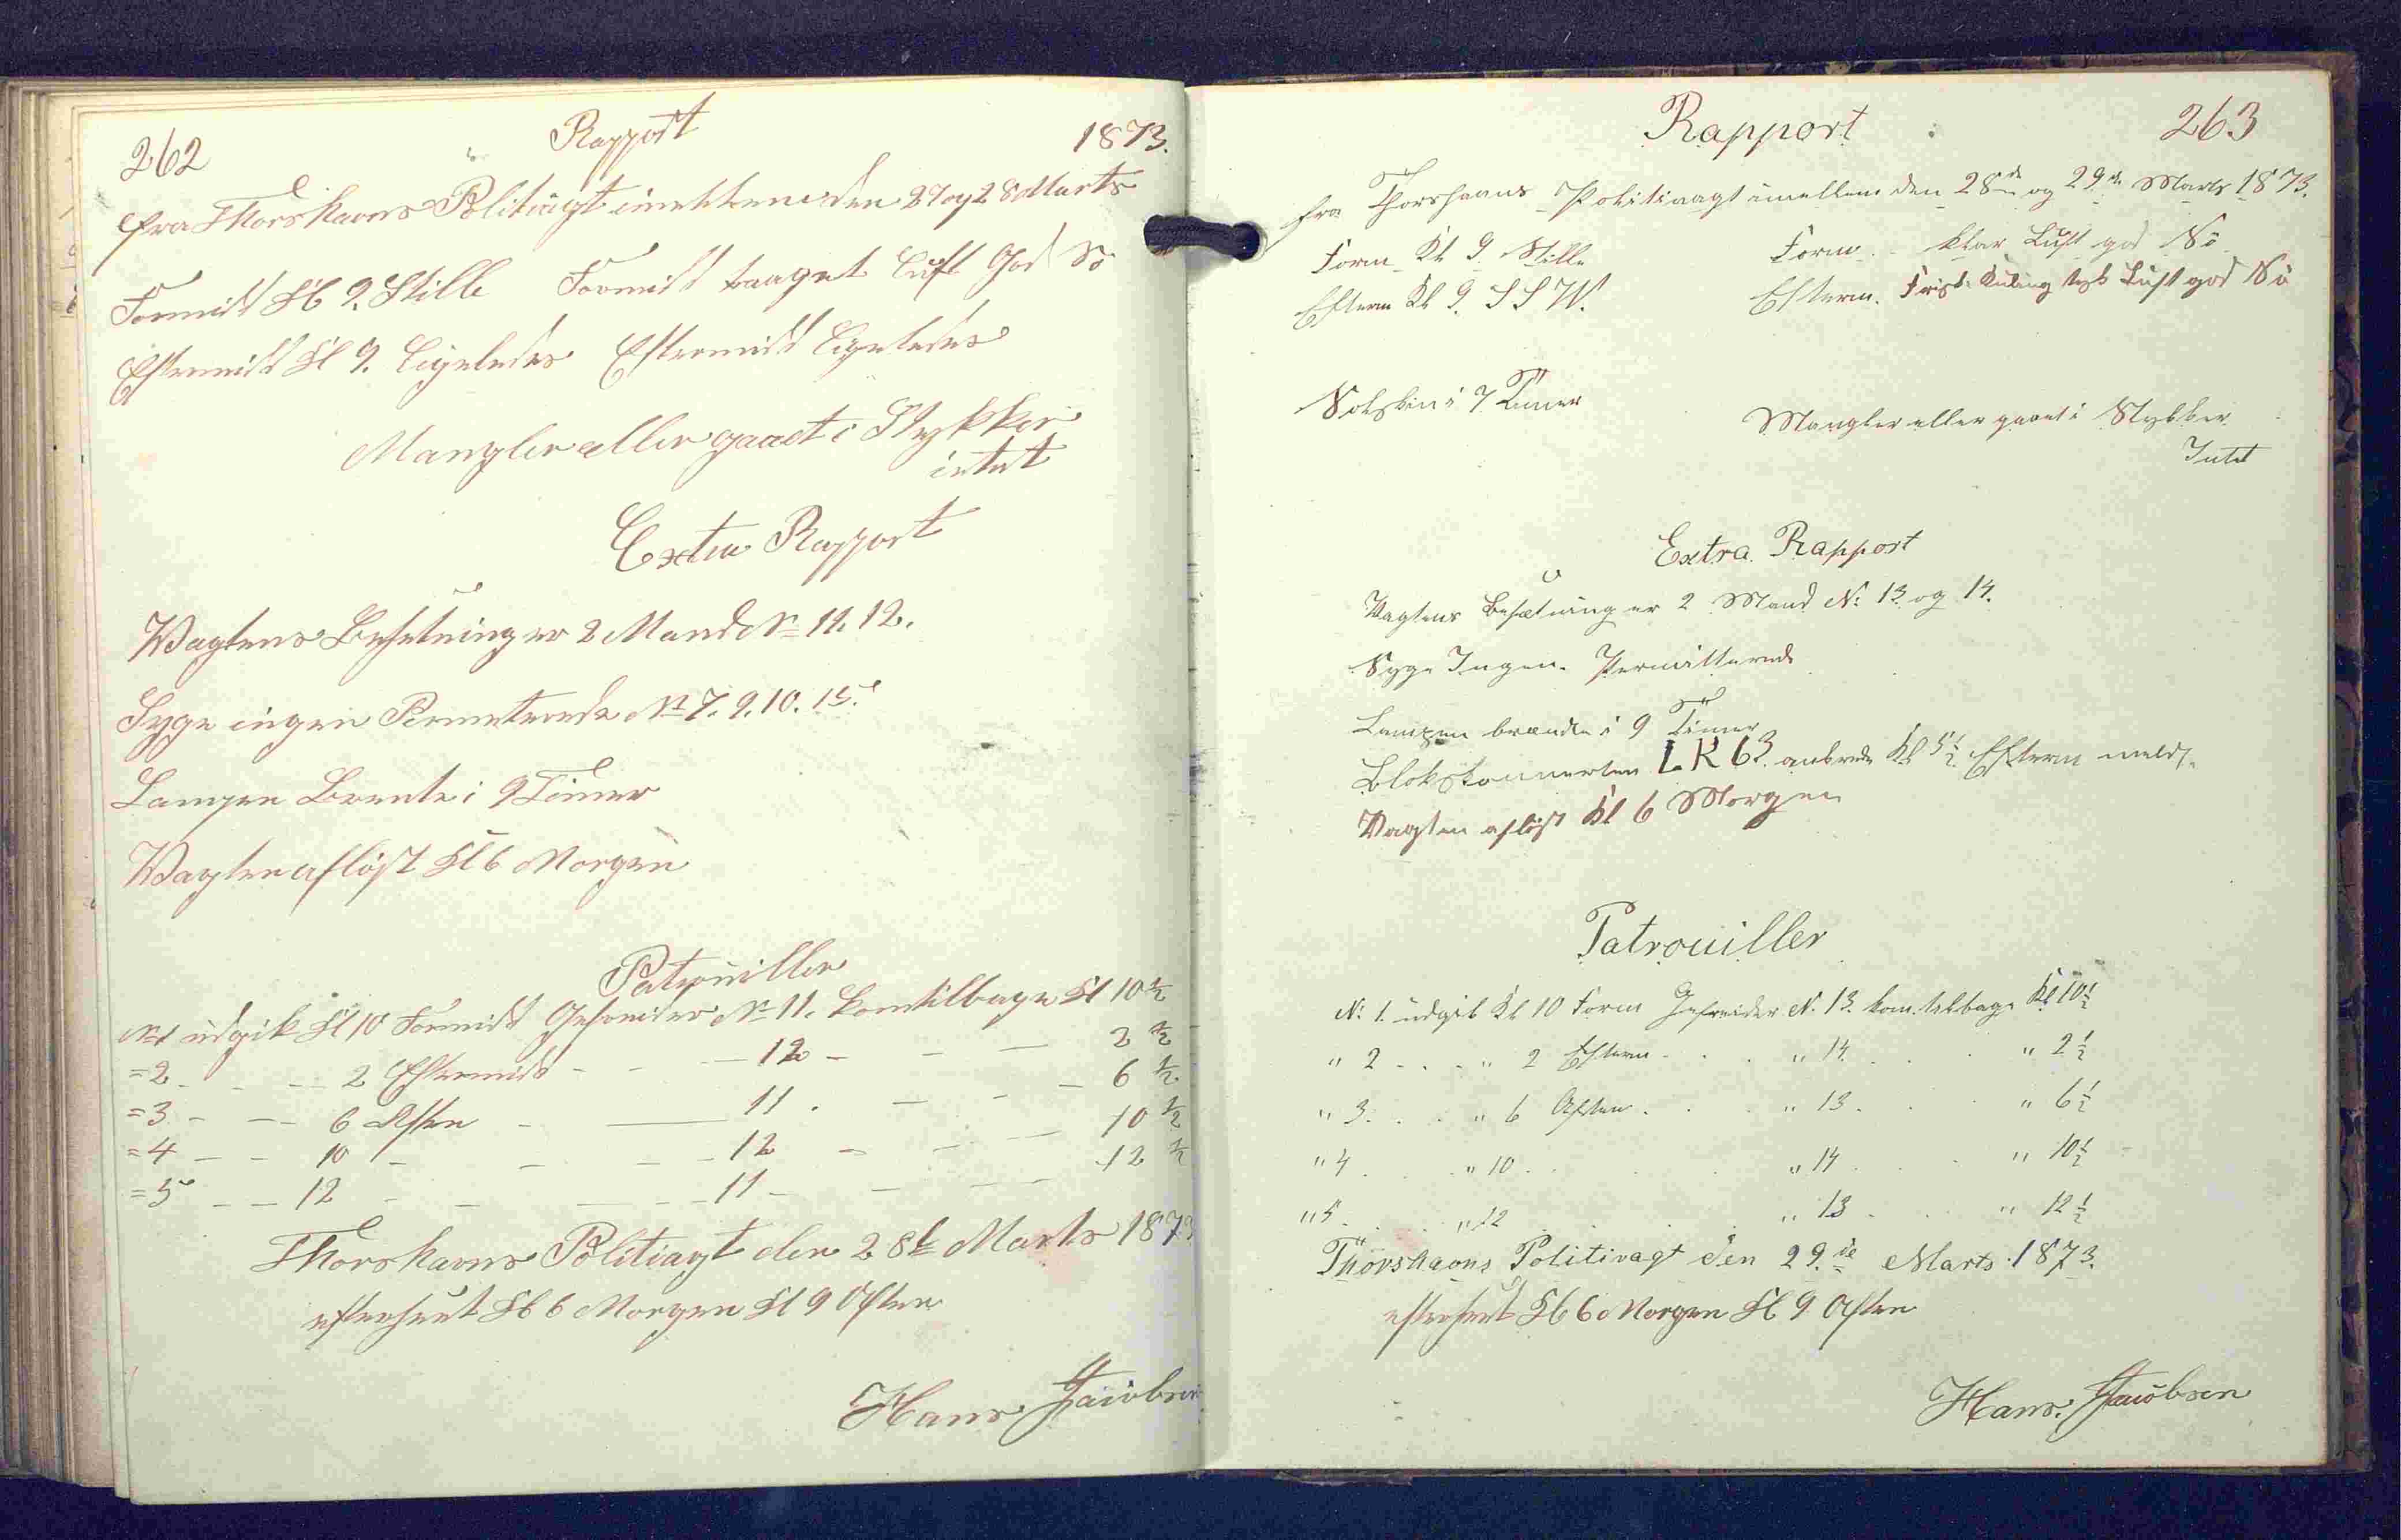 262 Rapport 1873.
fra Thorshavns Politiagt imellem den 27 og 28 Marts
Formidd Kl 9. Stille Formidd taaget Luft God Sö
Eftermidd Kl 9. Ligeledes Eftermidd Ligeledes
Mangler eller gaaet i Stykker
intet
Extra Rapport
Wagtens Besetning er 2 Mand No 11. 12.
Syge ingen Permeterede No 7. 9. 10. 15.
Lampen Brente i 9 Timer
Wagten aflöst Kl 6 Morgen
Patrouiller
No 1 udgik Kl 10 Formidd Gefreider No 11. kom tilbage Kl 10 1/2
=2 - - - 2 Eftermidd - - - 12 - - - 2 1/2
=3 - - - 6 Aften - - 11. - - - 6 1/2
=4 - - 10 - - - - 12 - - - 10 1/2
=5 - - 12 - - - - 11 - - - - 12 1/2
Thorshavns Politiagt den 28de Marts 1873
efterseet Kl 6 Morgen Kl 9 Aften
Hans Jacobsen
Rapport 263
fra Thorshavns Politivagt imellem den 28de og 29de Marts 1873.
Form. Kl 9. Stille Form. klar Luft god Sö
Efterm Kl 9. SSW. Efterm. Frisk Kuling tyk Luft god Sö
Solskin i 7 Timer
Mangler eller gaaet i Stykker
Intet
Extra Rapport
Vagtens Besætning er 2 Mand No: 13. og 14.
Syge Ingen. Permitterede
Lampen brændte i 9 Timer
LK 63. ankrede Kl 5 1/2 Efterm
Vagten aflöst Kl 6 Morgen
Patrouiller
No: 1. udgik Kl 10 Form Gefreider No. 13. kom tilbage Kl 10 1/2
" 2 - . . - " 2 Efterm . . . " 14. . . " 2 1/2
" 3. . . . " 6 Aften . . . " 13. . . " 6 1/2
" 4 . . . " 10 . . . " 14 . . . " 10 1/2
" 5. . . . " 12 . . " 13 . . . " 12 1/2
Thorshavns Politivagt den 29.de Marts 1873.
efterseet Kl 6 Morgen Kl 9 Aften
Hans. Jacobsen